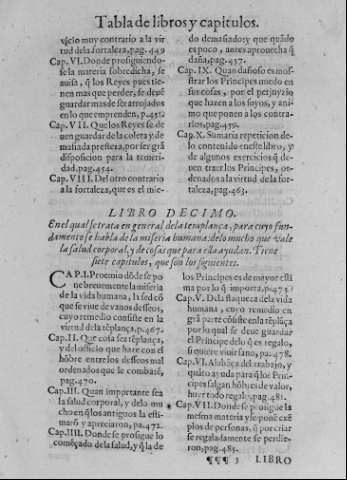 Tabla de libros y capitulos.
vicio muy contrario a la vir
tud de la fortaleza, pag. 449
Cap. VI. Donde prosiguiendo-
se la materia sobredicha, se
auisa, q̃ los Reyes pues tie-
nen mas que perder, se deuẽ
guardar mas de ser arrojados
en lo que emprenden, p. 451.
Cap. VII. Que los Reyes se de-
uen guardar de la colera, y de-
masiada presteza, por ser grã
disposicion para la temeri-
dad, pag. 454.
Cap. VIII. Del otro contrario
a la fortaleza, que es el mie-
do demasiado; y que quãdo
es poco, antes aprouecha q̃
daña, pag. 457.
Cap. IX. Quan dañoso es mos-
trar los Principes miedo en
sus cosas, por el perjuyzio
que hazen a los suyos, y ani-
mo que ponen a los contra-
rios, pag. 459.
Cap. X. Sumaria repeticion de
lo contenido en este libro, y
de algunos exercicios q̃ de-
uen traer los Principes, or-
denados a la virtud de la for-
taleza, pag. 463.
LIBRO DECIMO.
En el qual se trata en general de la templança, para cuyo fun-
damento se habla de la miseria humana: de lo mucho que vale
la salud corporal, y de cosas que para ello ayudan. Tiene
siete capitulos, que son los siguientes.
CAP. I. Proemio dõde se po-
ne breuemente la miseria
de la vida humana, la sed cõ
que se viue de vanos desseos,
cuyo remedio consiste en la
virtud de la tẽplança, p. 467.
Cap. II. Que cosa sea tẽplança,
y del officio que haze con el
hõbre entre los desseos mal
ordenados que le combatẽ,
pag. 470.
Cap. III. Quan importante sea
la salud corporal, y de lo mu
cho en q̃ los antiguos la esti-
marõ y apreciaron, pa. 472.
Cap. IIII. Donde se prosigue lo
comẽçado de la salud, y q̃ la de
los Principes es de mayor esti
ma por lo q̃ importa, p. 474
Cap. V. De la flaqueza de la vida
humana, cuyo remedio en
grã parte cõsiste en la tẽplãça
por lo qual se deue guardar
el Principe de lo q̃ es regalo,
si quiere viuir sano, pa. 478.
Cap. VI. Alabãça del trabajo, y
quãto ayuda para q̃ los Prin-
cipes salgan hõbres de valor,
huir todo regalo, pag. 481.
Cap. VII. Donde se prosigue la
misma materia y se ponẽ exẽ
plos de personas, q̃ por criar
se regaladamente se perdie-
ron, pag. 485.
¶¶¶ 3 LIBRO